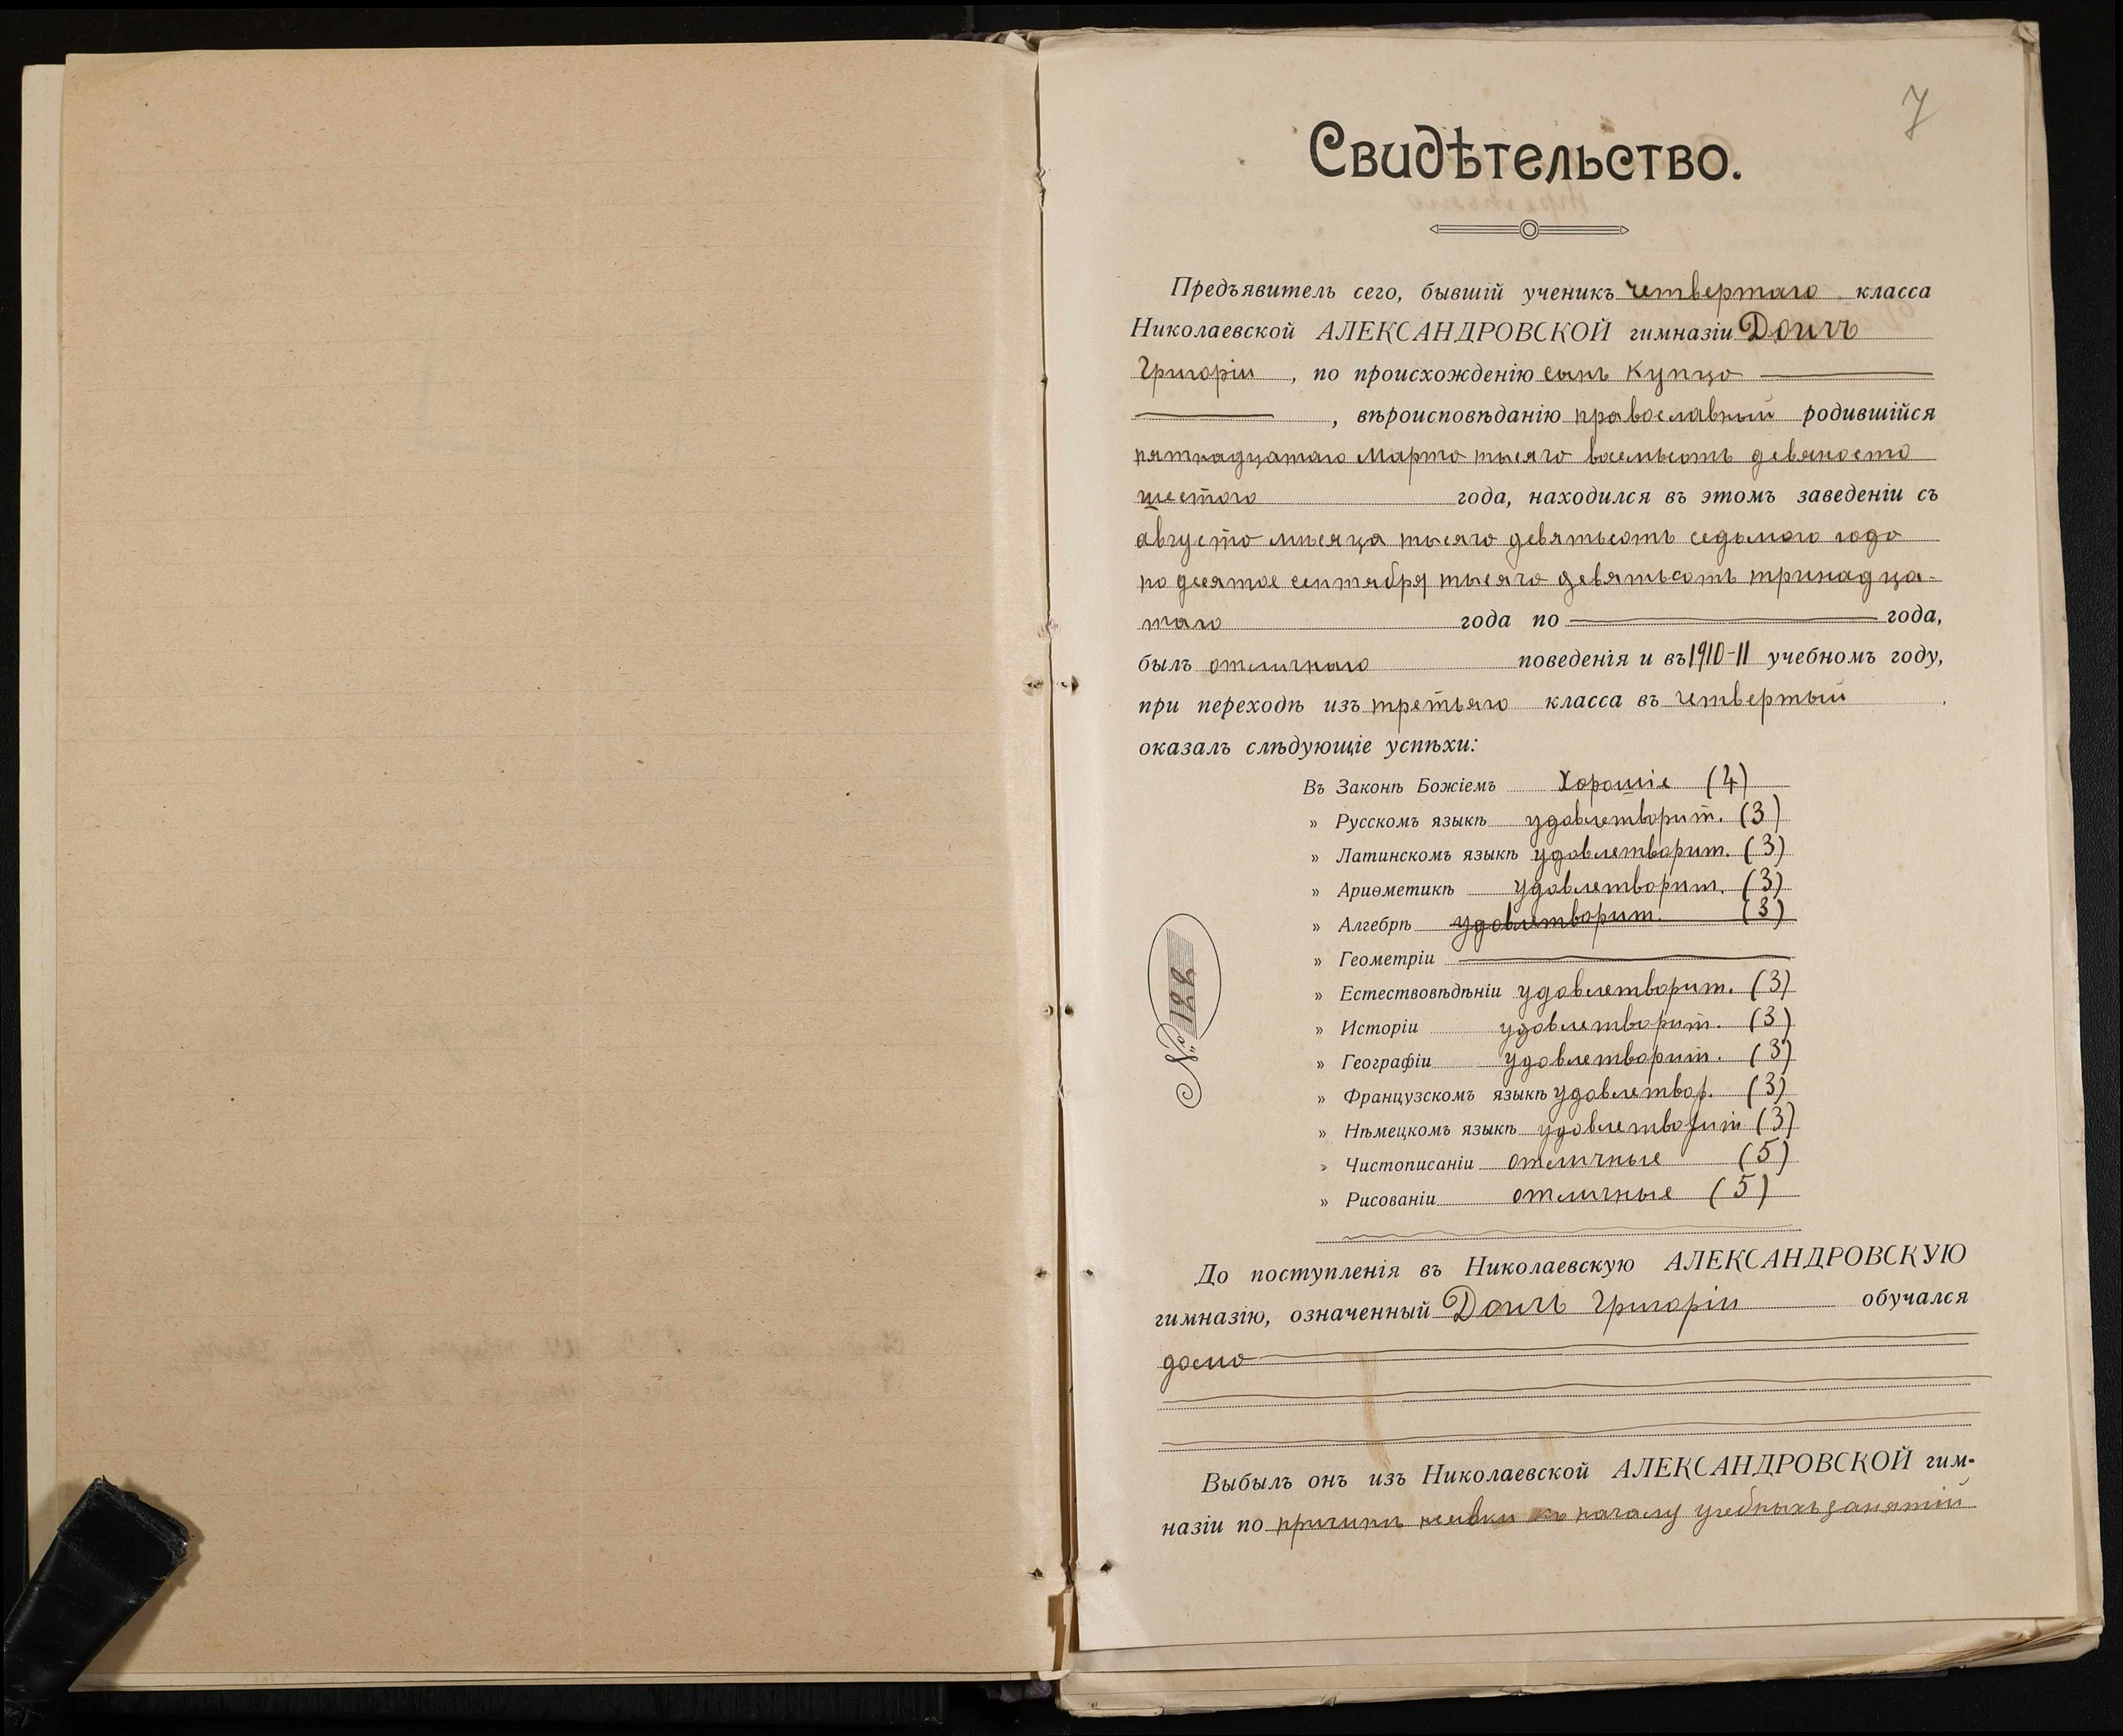 7
Свидѣтельство.
Предъявитель сего, бывшій ученикъ четвертаго класса
Николаевской АЛЕКСАНДРОВСКОЙ гимназіи Доичъ
Григорій, по происхожденію сынъ купца
, вѣроисповѣданію православный родившійся
пятнадцатаго Марта тысяча восемьсотъ девяносто
шестого года, находился въ этомъ заведеніи съ
августа мѣсяца тысяча девятьсотъ седьмого года
по десятое сентября тысяча девятьсотъ тринадца-
таго года по года,
былъ отличнаго поведенія и въ 1910-11 учебномъ году,
при переходѣ изъ третьяго класса въ четвертый
оказалъ слѣдующіе успѣхи:
Въ Законѣ Божіемъ Хорошіе (4)
» Русскомъ языкѣ удовлетворит. (3)
» Латинскомъ языкѣ удовлетворит. (3)
» Ариѳметикѣ удовлетворит. (3)
» Алгебрѣ удовлетворит. (3)
» Геометріи
» Естествовѣдѣніи удовлетворит. (3)
» Исторіи удовлетворит. (3)
» Географіи удовлетворит. (3)
» Французскомъ языкѣ удовлетвор. (3)
» Нѣмецкомъ языкѣ удовлетворит (3)
» Чистописаніи отличные (5)
» Рисованіи отличные (5)
№ 122
До поступленія въ Николаевскую АЛЕКСАНДРОВСКУЮ
гимназію, означенный Доичъ Григорій обучался
дома
Выбылъ онъ изъ Николаевской АЛЕКСАНДРОВСКОЙ гим-
назіи по причинѣ неявки къ началу учебныхъ занятій